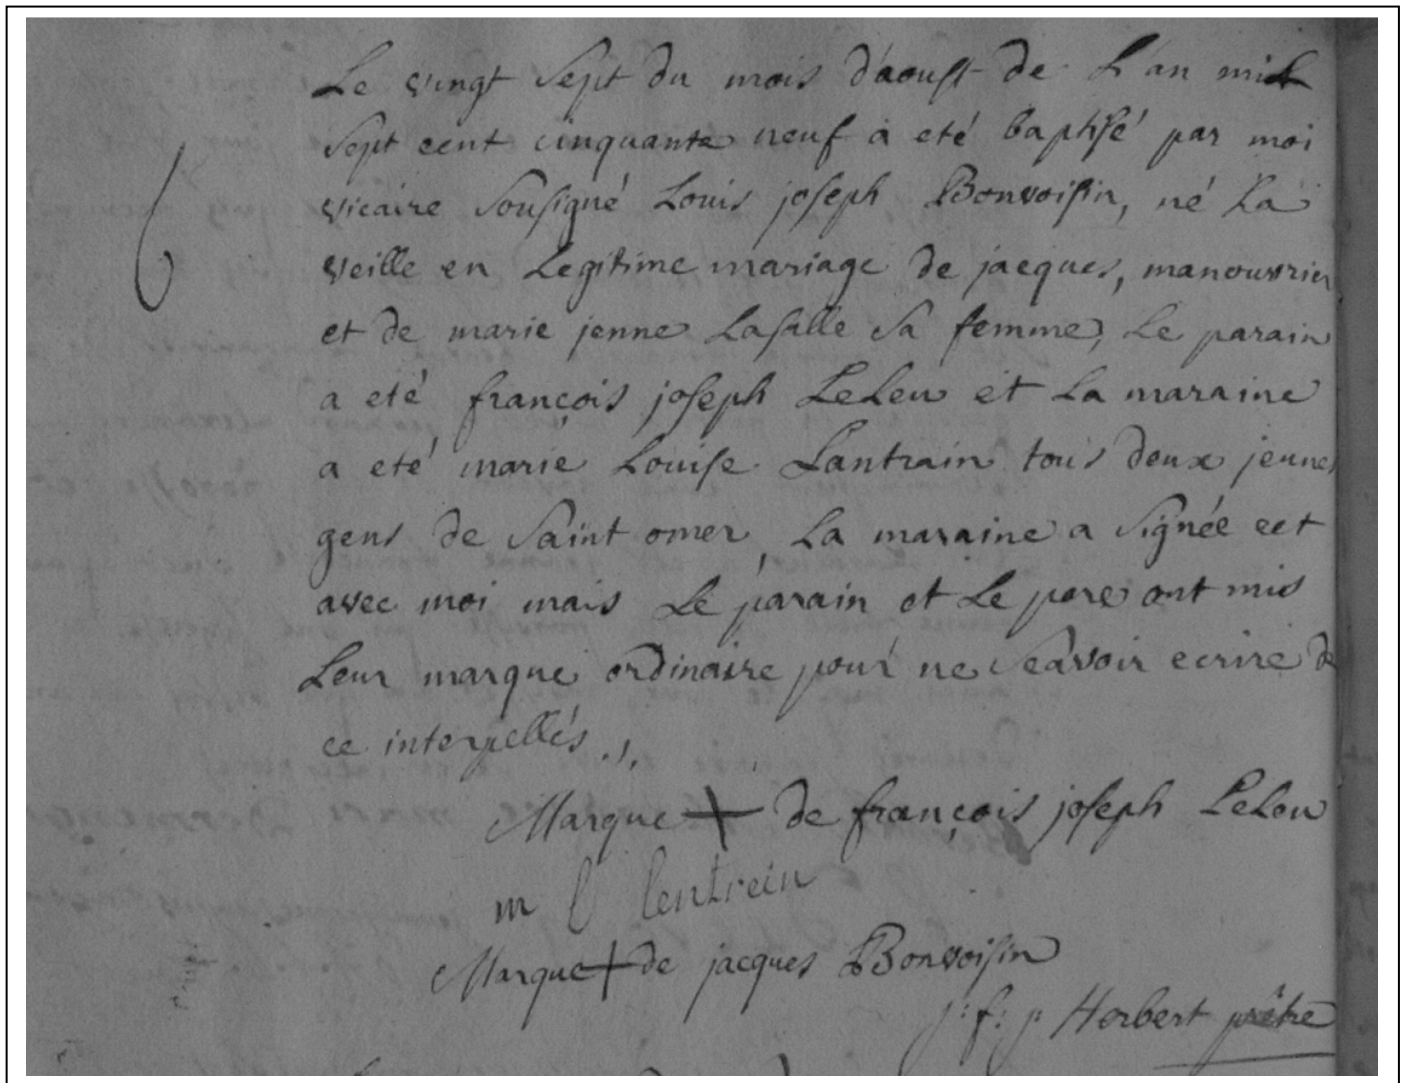 Le vingt sept du mois d'aoust de L'an mil
sept cent cinquante neuf à eté baptisé par moi
vicaire sousigné Louis joseph Bonvoisin, né La
veille en Legitime mariage de jacques, manouvrier
et de marie jenne Lasalle sa femme, Le parain
a eté françois joseph LeLeu et La maraine
a eté marie Louise Lantrain tous deux jeunes
gens de Saint omer, La maraine a signée cet
avec moi mais Le parain et Le pere ont mis
Leur marque ordinaire pour ne sçavoir ecrire de
ce interpellés
Marque + de françois joseph LeLeu
m l lentrein
Marque + de jacques Bonvoisin
j: f: j: Herbert prêtre